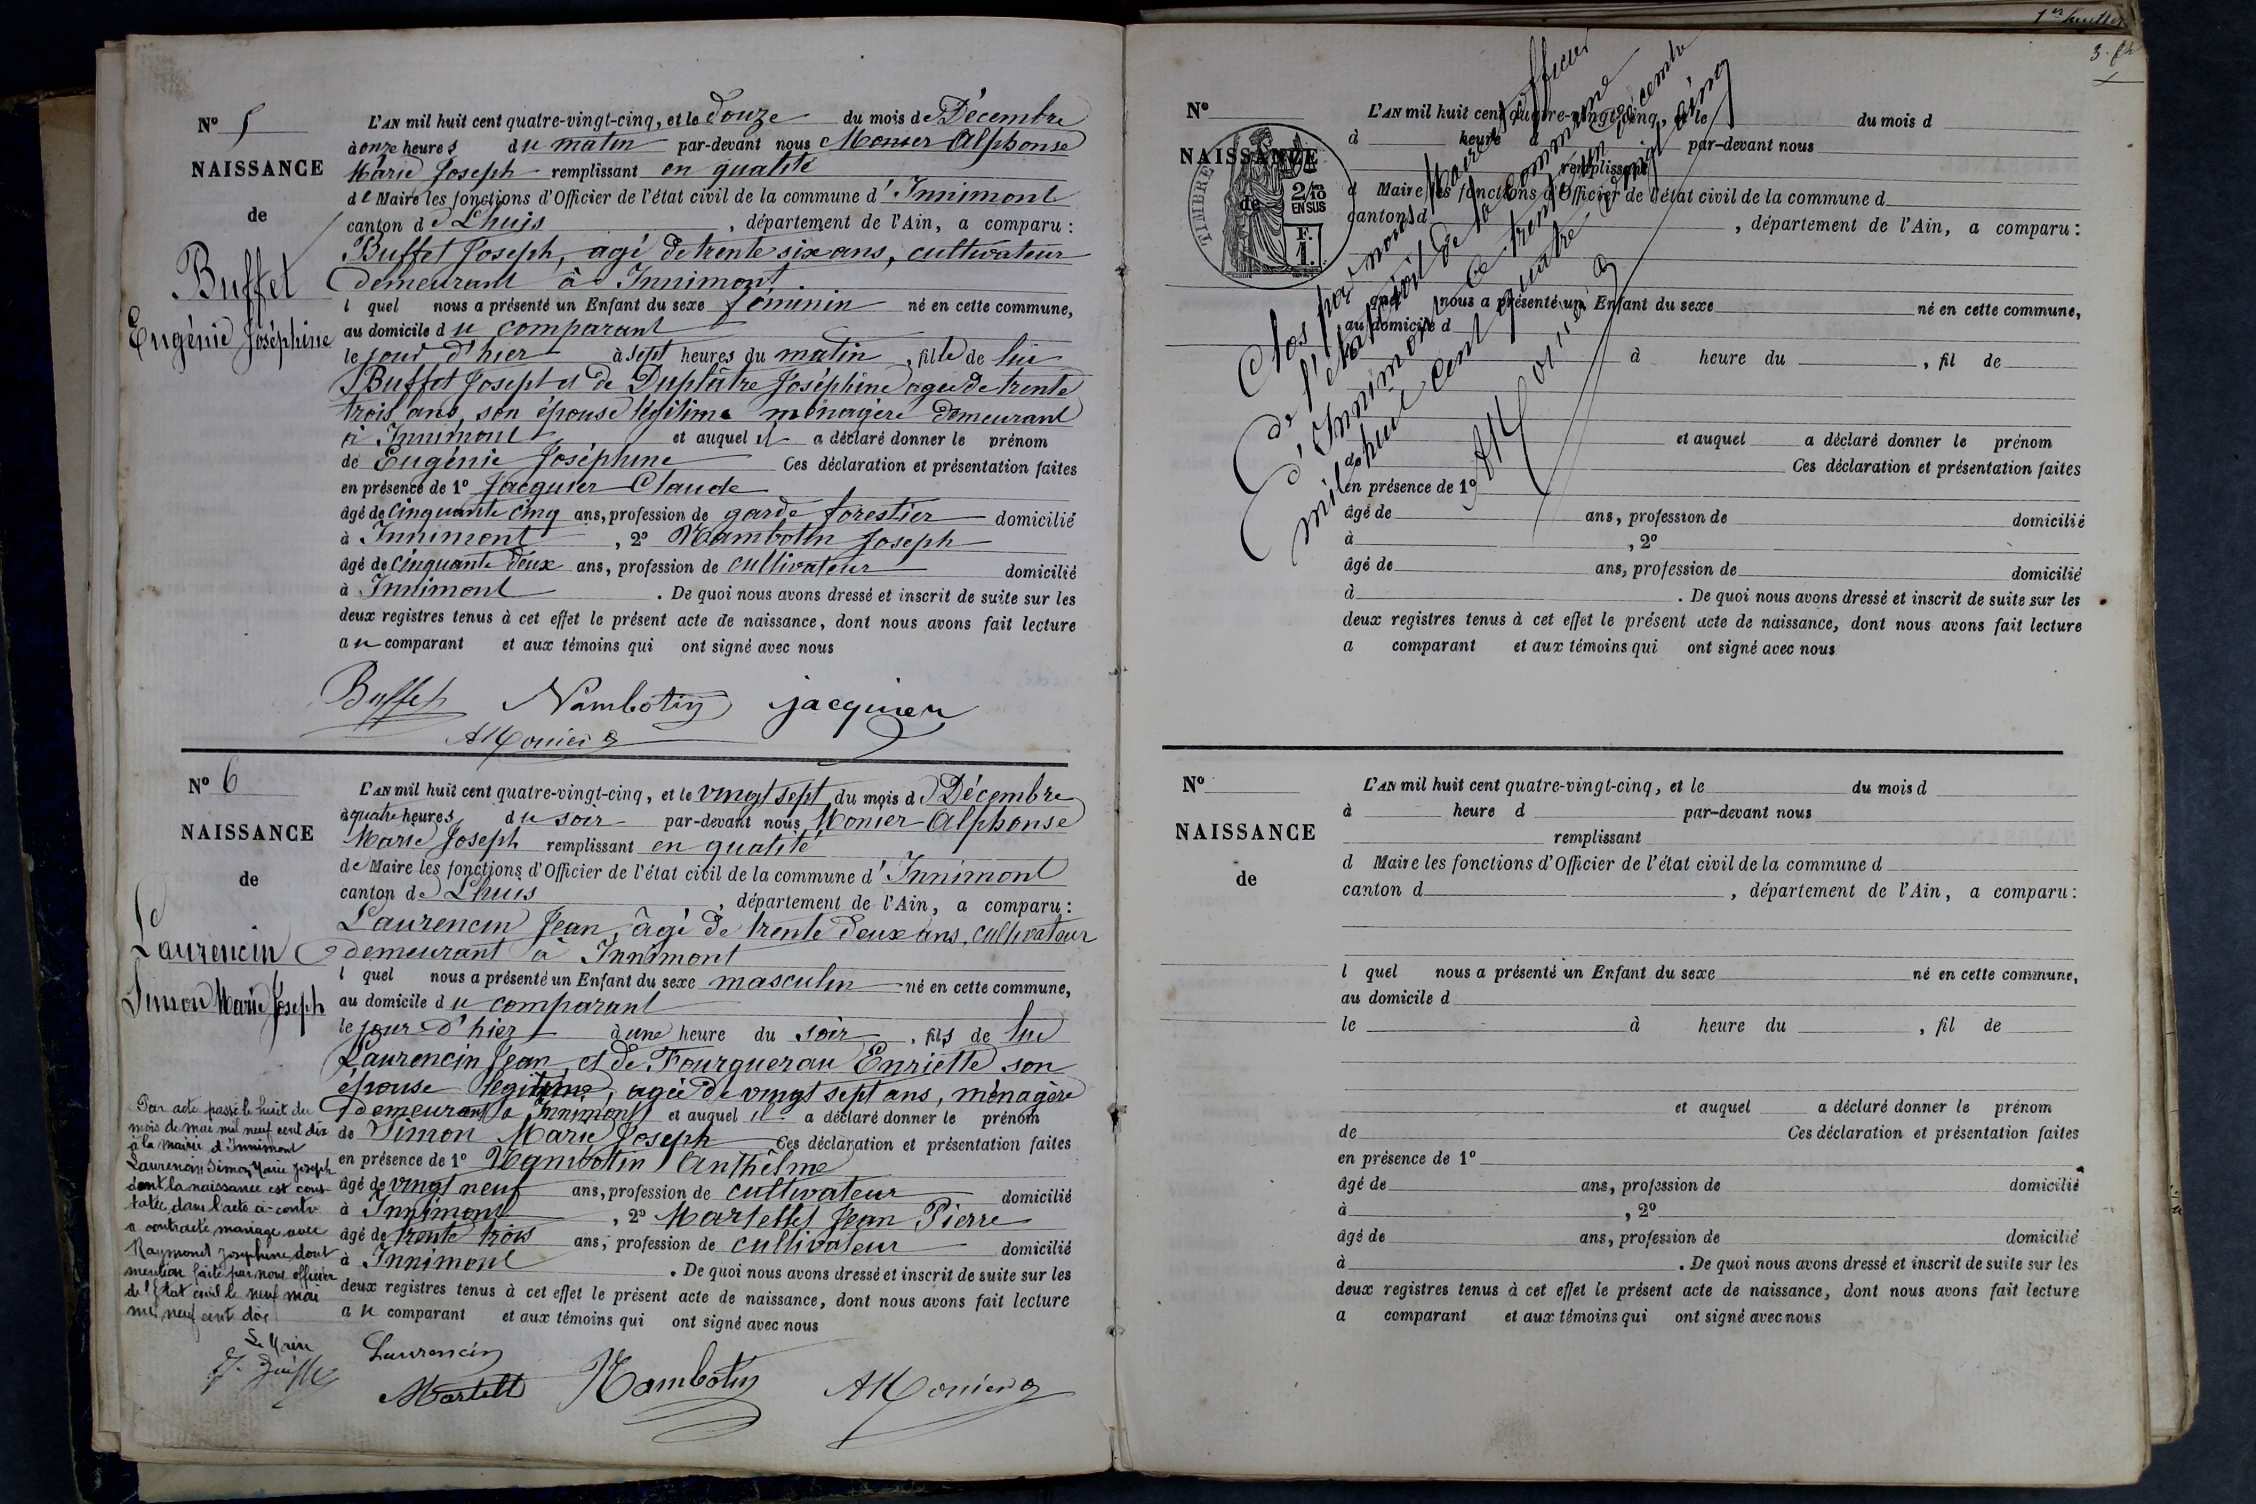 N° 5
NAISSANCE
de
Buffet
Eugénie Joséphine
L'AN mil huit cent quatre-vingt-cinq, et le douze du mois de Décembre
à onze heures du matin par-devant nous Monier Alphonse
Marie Joseph remplissant en qualité
de Maire les fonctions d'Officier de l'état civil de la commune d'Innimont
canton de Lhuis, département de l'Ain, a comparu :
Buffet Joseph, agé de trente six ans, cultivateur
demeurant à Innimont
l quel nous a présenté un Enfant du sexe féminin né en cette commune,
au domicile du comparant
le jour d'hier à sept heures du matin, fille de lui
Buffet Joseph et de Duplâtre Joséphine agée de trente
trois ans, son épouse légitime ménagère demeurant
à Innimont et auquel il a déclaré donner le prénom
de Eugénie Joséphine Ces déclaration et présentation faites
en présence de 1° Jacquier Claude
âgé de cinquante cinq ans, profession de garde forestier domicilié
à Innimont, 2° Nambotin Joseph
âgé de cinquante deux ans, profession de cultivateur domicilié
à Innimont. De quoi nous avons dressé et inscrit de suite sur les
deux registres tenus à cet effet le présent acte de naissance, dont nous avons fait lecture
au comparant et aux témoins qui ont signé avec nous
Buffet Nambotin jacquier
AMonier
N° 6
NAISSANCE
de
Laurencin
Simon Marie Joseph
L'AN mil huit cent quatre-vingt-cinq, et le vingt sept du mois de Décembre
à quatre heures du soir par-devant nous Monier Alphonse
Marie Joseph remplissant en qualité
de Maire les fonctions d'Officier de l'état civil de la commune d'Innimont
canton de Lhuis, département de l'Ain, a comparu :
Laurencin Jean, âgé de trente deux ans, cultivateur
demeurant à Innimont
l quel nous a présenté un Enfant du sexe masculin né en cette commune,
au domicile du comparant
le jour d'hier à une heure du soir, fils de lui
Laurencin Jean et de Fourquerau Enriette son
épouse légitime, agée de vingt sept ans, ménagère
demeurant à Innimont et auquel il a déclaré donner le prénom
de Simon Marie Joseph Ces déclaration et présentation faites
en présence de 1° Nambotin Anthelme
âgé de vingt neuf ans, profession de cultivateur domicilié
à Innimont, 2° Martellet Jean Pierre
âgé de trente trois ans, profession de cultivateur domicilié
à Innimont. De quoi nous avons dressé et inscrit de suite sur les
deux registres tenus à cet effet le présent acte de naissance, dont nous avons fait lecture
au comparant et aux témoins qui ont signé avec nous
Laurencin
Martellet Nambotin AMonier
Par acte passé le huit du
mois de mai mil neuf cent dix
à la mairie d'Innimont
Laurencin Simon Marie Joseph
dont la naissance est cons
tatée dans l'acte ci-contre
a contracté mariage avec
Raymond Joséphine dont
mention faite par nous officier
de l'Etat civil le neuf mai
mil neuf cent dix
Le Maire
1er feuillet
N°
NAISSANCE
de
TIMBRE
2/10
EN SUS
F.
1.
L'AN mil huit cent quatre-vingt-cinq, et le du mois d
à heure d par-devant nous
remplissant
d Maire les fonctions d'Officier de l'état civil de la commune d
canton d, département de l'Ain, a comparu :
l quel nous a présenté un Enfant du sexe né en cette commune,
au domicile d
à heure du, fil de
et auquel a déclaré donner le prénom
de Ces déclaration et présentation faites
en présence de 1°
âgé de ans, profession de domicilié
à, 2°
âgé de ans, profession de domicilié
à. De quoi nous avons dressé et inscrit de suite sur les
deux registres tenus à cet effet le présent acte de naissance, dont nous avons fait lecture
a comparant et aux témoins qui ont signé avec nous
Clos par nous Maire officier
de l'état civil de la commune
d'Innimont ce trente un décembre
mil huit cent quatre vingt cinq
AMonier
N°
NAISSANCE
de
L'AN mil huit cent quatre-vingt-cinq, et le du mois d
à heure d par-devant nous
remplissant
d Maire les fonctions d'Officier de l'état civil de la commune d
canton d, département de l'Ain, a comparu :
l quel nous a présenté un Enfant du sexe né en cette commune,
au domicile d
le à heure du, fil de
et auquel a déclaré donner le prénom
de Ces déclaration et présentation faites
en présence de 1°
âgé de ans, profession de domicilié
à, 2°
âgé de ans, profession de domicilié
à. De quoi nous avons dressé et inscrit de suite sur les
deux registres tenus à cet effet le présent acte de naissance, dont nous avons fait lecture
a comparant et aux témoins qui ont signé avec nous